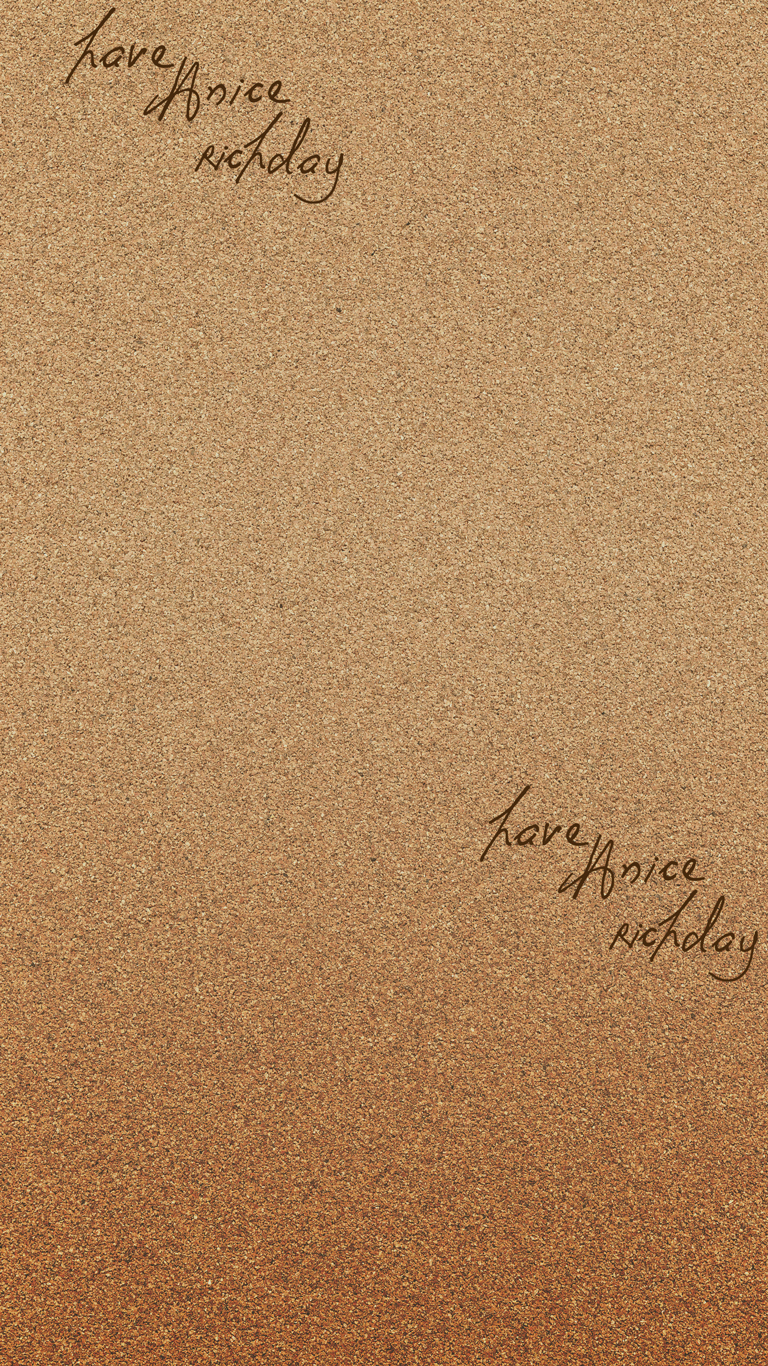 have
A nice
Richday
have
A nice
Richday